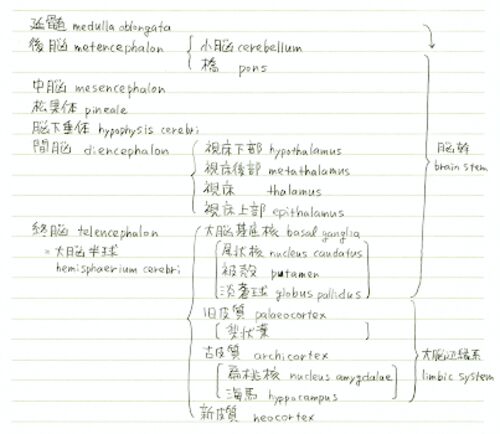 延髄 medulla oblongata
後脳 metencephalon 小脳 cerebellum
橋 pons
中脳 mesencephalon
松果体 pineale
脳下垂体 hypophysis cerebri
間脳 diencephalon 視床下部 hypothalamus
視床後部 metathalamus
視床 thalamus
視床上部 epithalamus
脳幹
brain stem
終脳 telencephalon 大脳基底核 basal ganglia
= 大脳半球 尾状核 nucleus caudatus
hemisphaerium cerebri 被殻 putamen
淡蒼球 globus pallidus
旧皮質 palaeocortex
梨状葉
古皮質 archicortex
扁桃核 nucleus amygdalae
海馬 hyppocampus
大脳辺縁系
limbic system
新皮質 neocortex